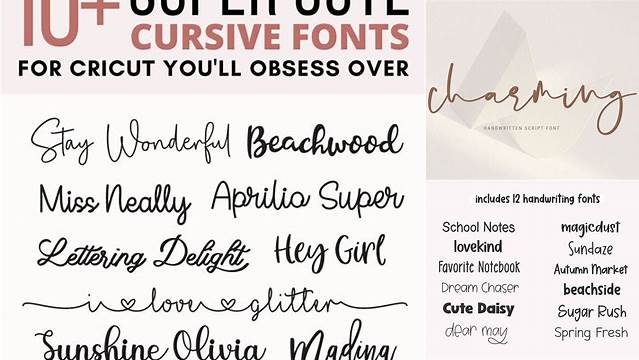 10+ SUPER CUTE
CURSIVE FONTS
FOR CRICUT YOU'LL OBSESS OVER
Stay Wonderful Beachwood
Miss Neally Aprilio Super
Lettering Delight Hey Girl
i love glitter
Sunshine Olivia Madina
charming
HANDWRITTEN SCRIPT FONT
includes 12 handwriting fonts
School Notes magicdust
lovekind Sundaze
Favorite Notebook Autumn Market
Dream Chaser beachside
Cute Daisy Sugar Rush
dear may Spring Fresh